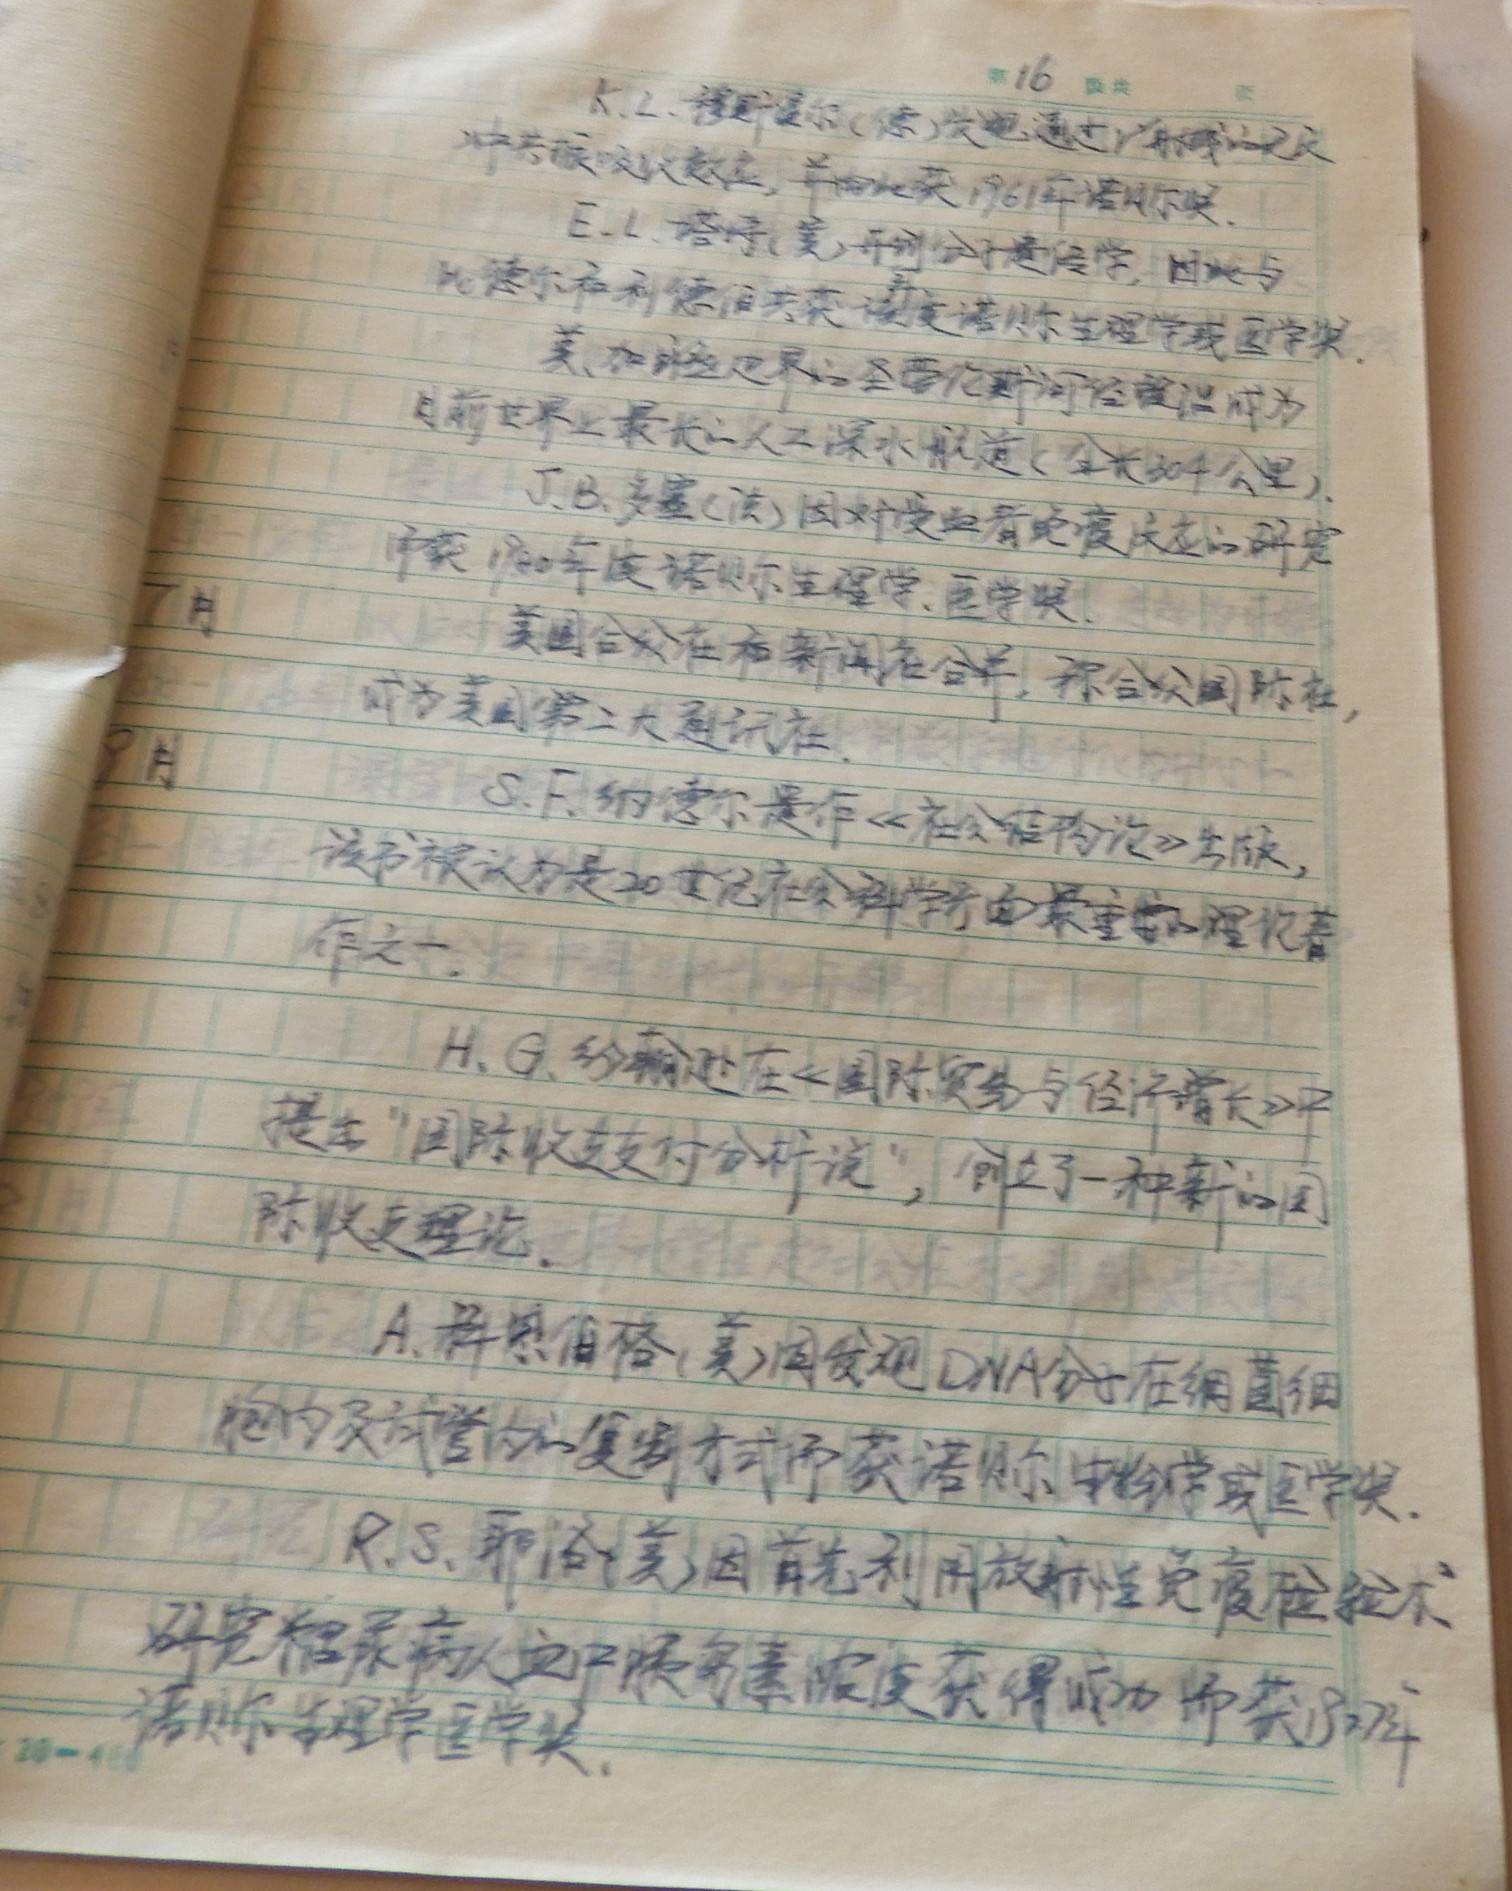 第16页共 页
K.L.穆斯堡尔(德)发现通过γ射线的无反
冲共振吸收效应,并由此获1961年诺贝尔奖.
E.L.塔特(美)开创分子遗传学,因此与
比德尔和利德伯共获该年度诺贝尔生理学或医学奖.
美、加 边界的圣劳伦斯河 成为
目前世界上最长的人工深水航道(全长304公里).
J.B.多塞(法)因对受血者免疫反应的研究
而获1980年度诺贝尔生理学、医学奖.
7月
美国合众社和新闻社合并,称合众国际社,
成为美国第二大通讯社.
9月
S.F.纳德尔遗作《社会结构论》出版,
该书被认为是20世纪社会科学方面最重要的理论著
作之一.
H.G.约翰逊在《国际贸易与经济增长》中
提出"国际收支支付分析说",创立了一种新的国
际收支理论.
A.科恩伯格(美)因发现DNA分子在细菌细
胞内及试管内的复制方式而获诺贝尔生物学或医学奖.
R.S.耶洛(美)因首先利用放射性免疫 术
研究糖尿病人血中胰岛素浓度获得成功而获1977年
诺贝尔生理学医学奖.
20-4 0